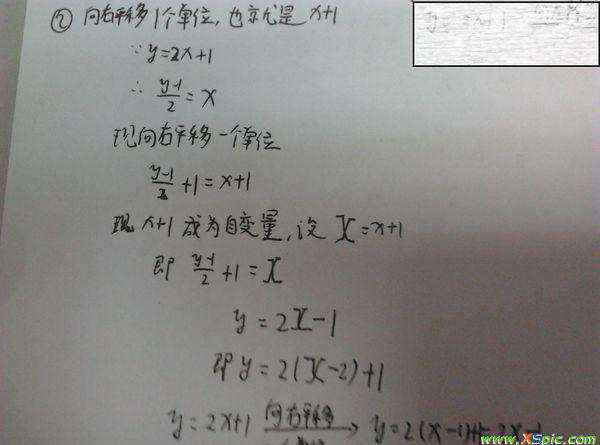 ② 向右平移1个单位,也就是 x+1
∵ y=2x+1
∴ (y-1)/2 = x
现向右平移一个单位
(y-1)/2 +1 = x+1
现 x+1 成为自变量,设 X = x+1
即 (y-1)/2 +1 = X
y = 2X-1
即 y = 2(X-2)+1
y = 2x+1 向右平移 → y=2(x-1)+1=2x-1
www.XSpic.com